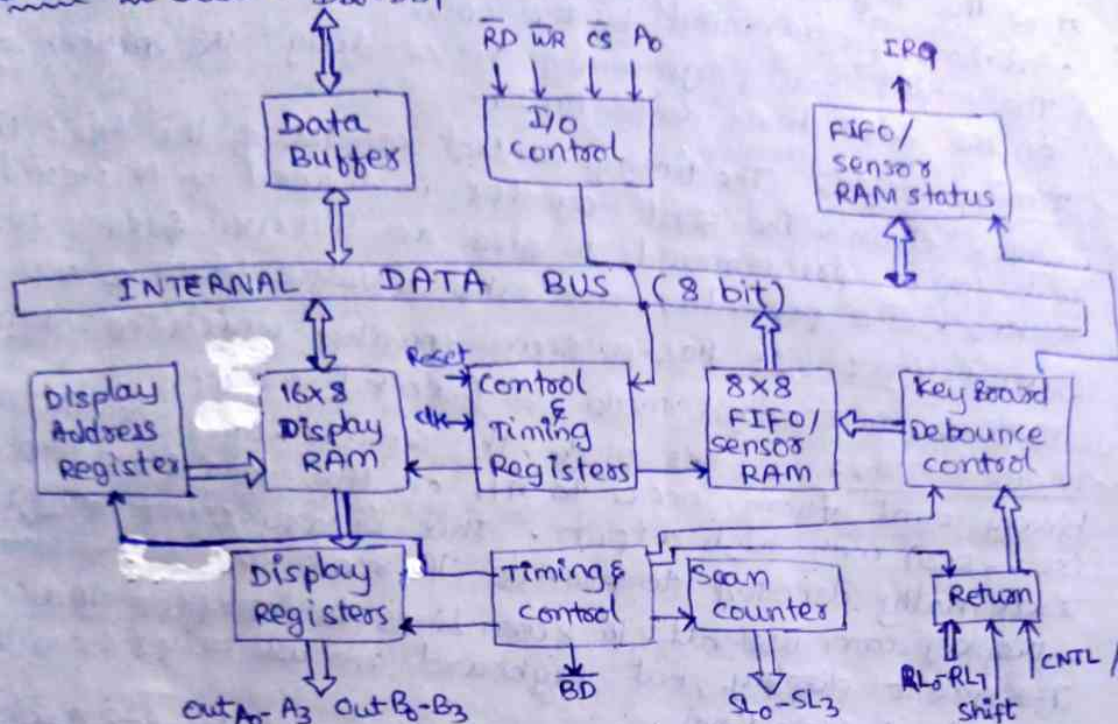 RD WR CS A0
IRQ
Data
Buffer
I/O
Control
FIFO/
sensor
RAM status
INTERNAL DATA BUS (8 bit)
Display
Address
Register
16X8
Display
RAM
Reset
clk
Control
&
Timing
Registers
8X8
FIFO/
sensor
RAM
KeyBoard
Debounce
control
Display
Registers
Timing &
control
Scan
counter
Return
BD
OutA0-A3 OutB0-B3
SL0-SL3
RL0-RL7
Shift
CNTL/